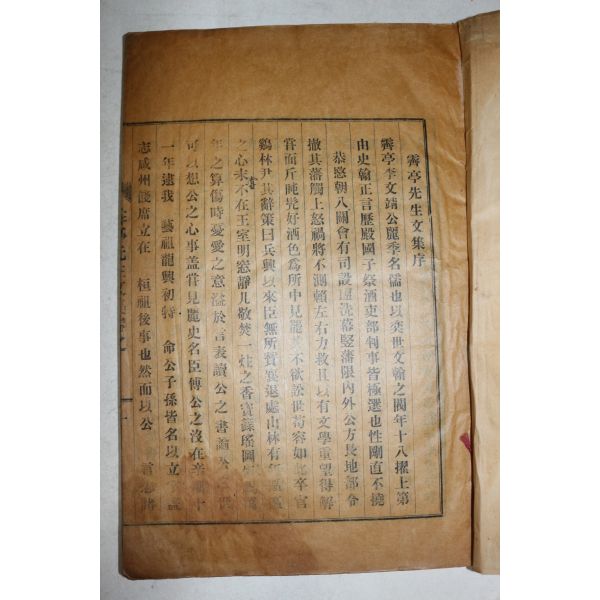 霽亭先生文集序
霽亭李文靖公麗季名儒也以奕世文翰之閥年十八擢上第
由史翰正言歷殿國子祭酒吏部判事皆極選也性剛直不撓
恭愍朝八關會有司設盥洗幕竪藩限內外公方長地部令
撤其藩觸上怒禍將不測賴左右力救且以有文學重望得解
嘗面斥旽髡好酒色爲所中見罷 不欲訟世苟容如此卒官
鷄林尹其辭策曰兵興以來臣無所 退處山林有年
之心未 不在王室明窓靜几敬焚一炷之香實錄瑤圖
年之算傷時憂愛之意溢於言表讀公之書
可以想公之心事盖嘗見麗史名臣傳公之沒在辛 十
一年逮我 藝祖龍興初特 命公子孫皆名以立 盖
志咸州餞席立在 桓祖後事也然而以公 言志